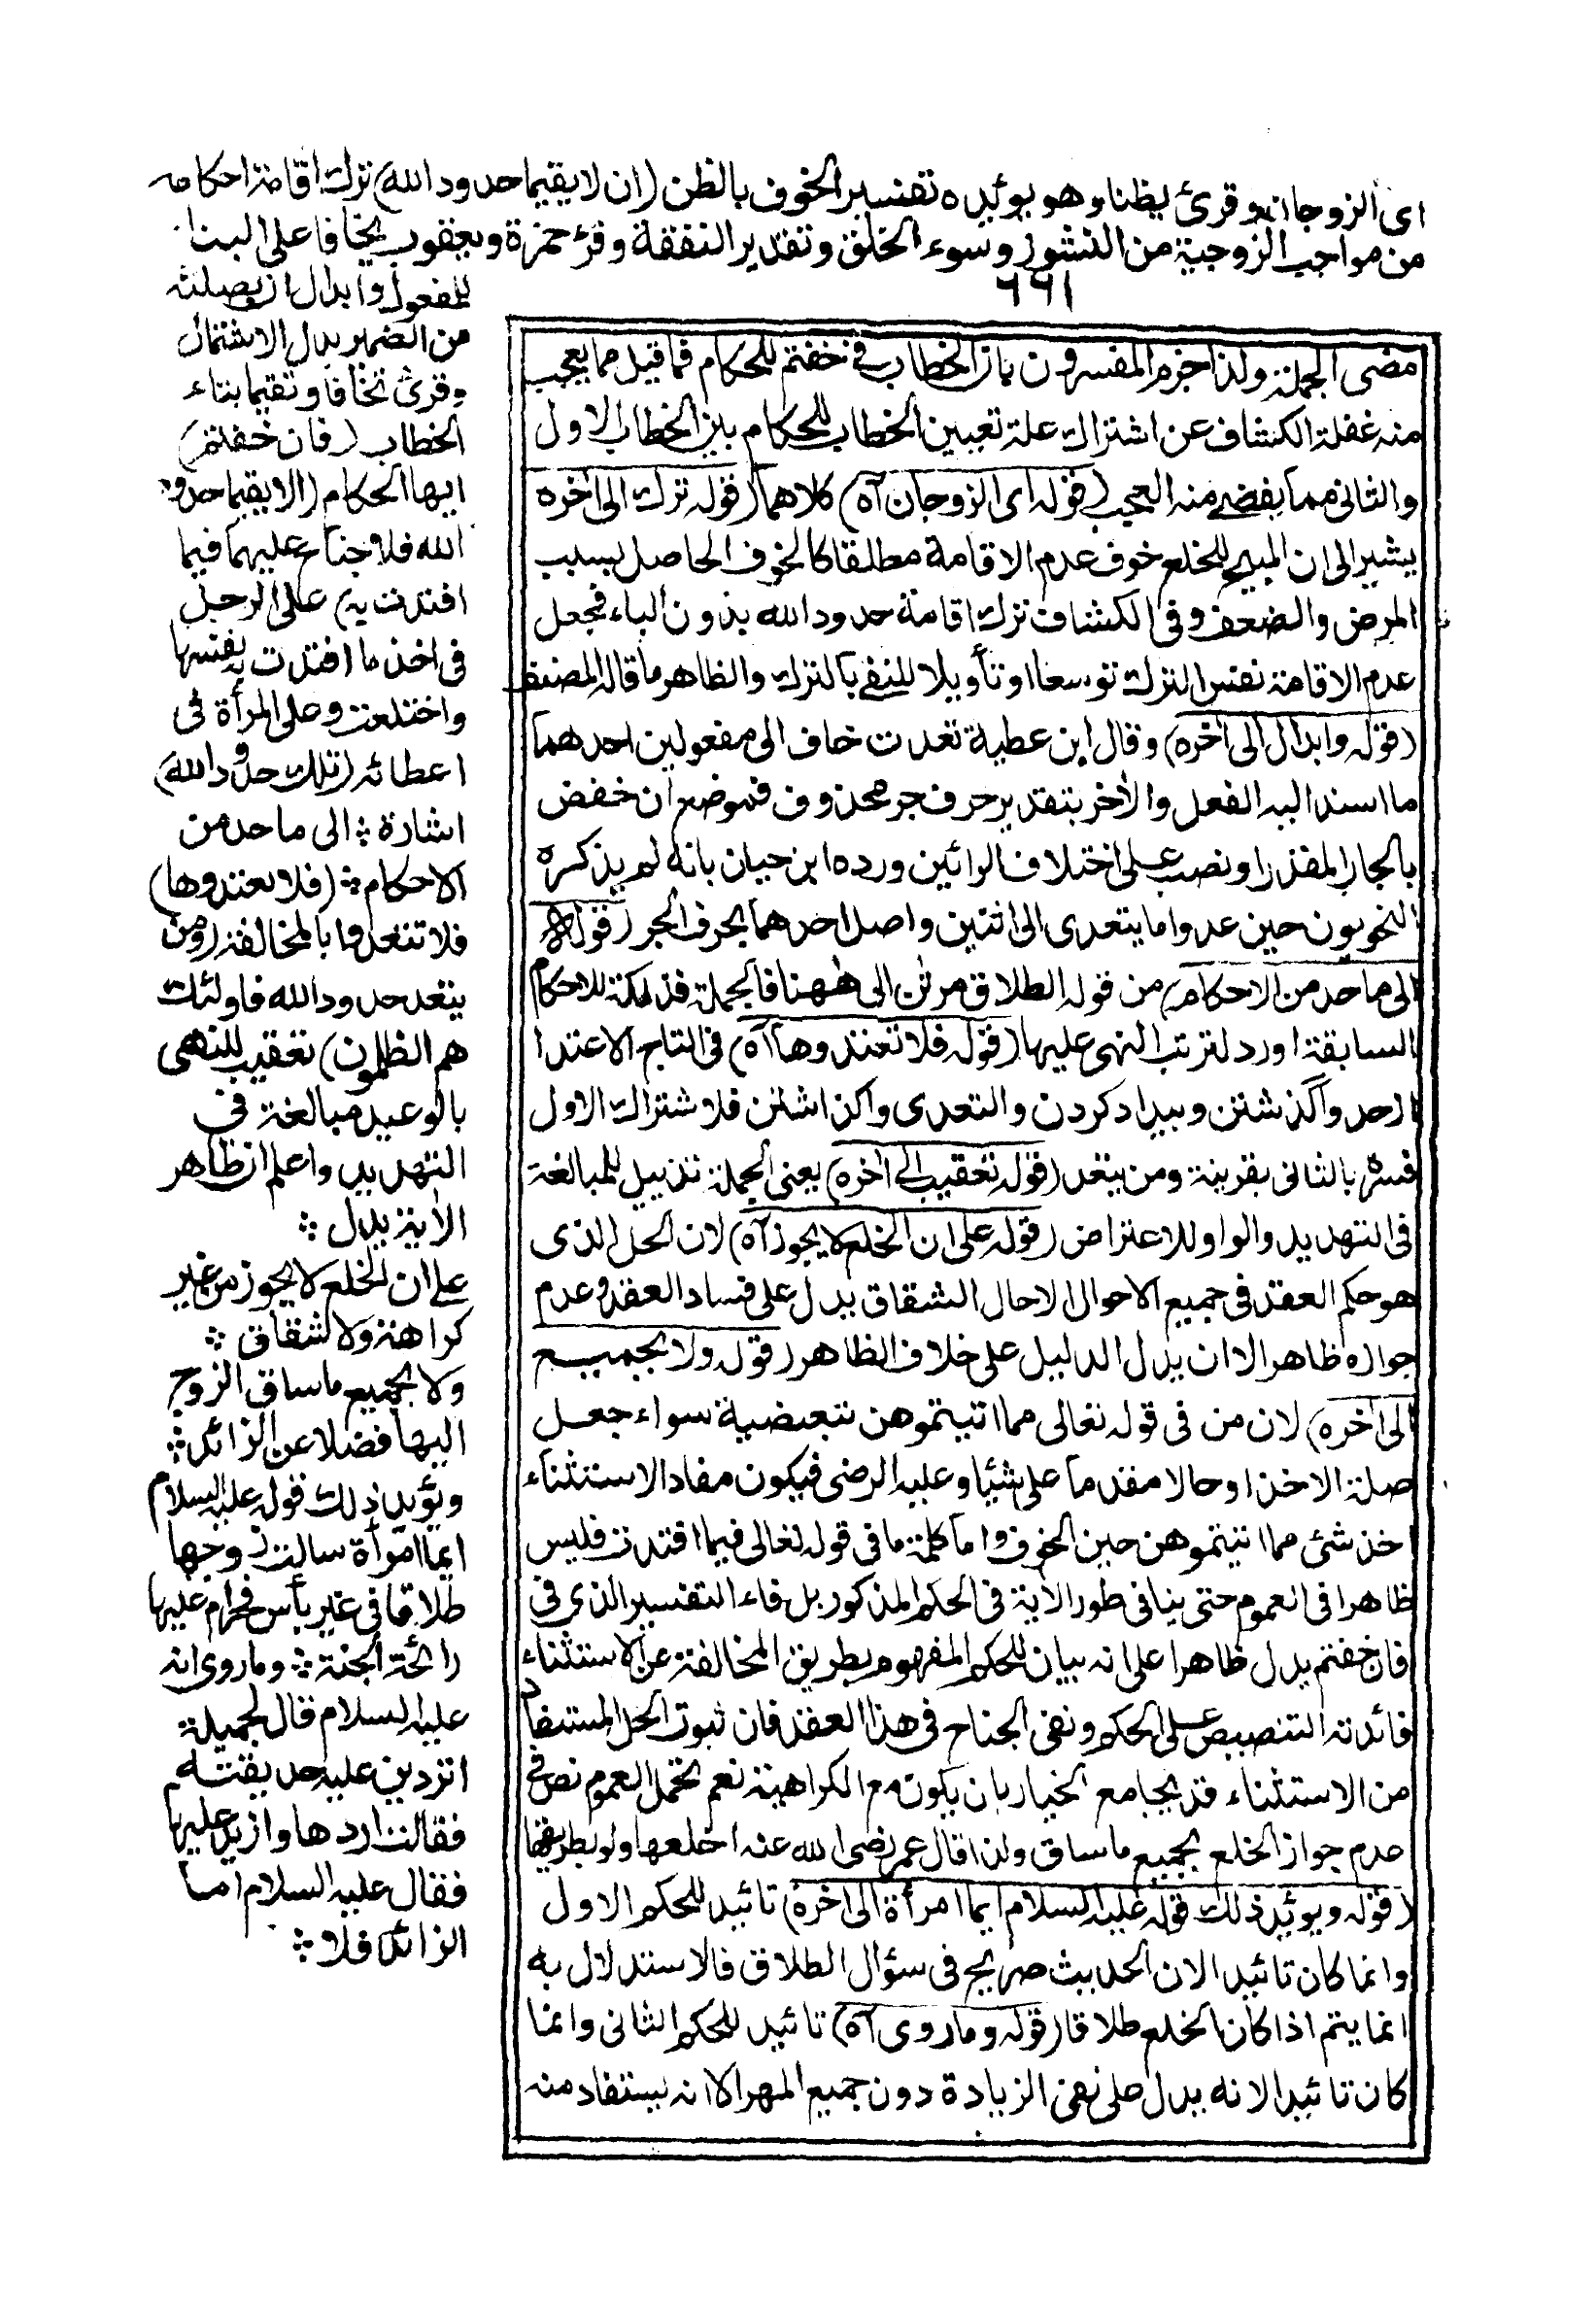 اى الزوجان وقرئ يظنا وهو يؤيد ه تفسير الخوف بالظن (ان لا يقيما حدود الله) ترك اقامة احكامه
من مواجب الزوجية من النشوز وسوء الخلق وتقدير النفقة وقرء حمزة ويعقوب يخافا على البناء
٦٦١
للمفعول وابدال ان بصلته
من الضمير بدل الاشتمال
وقرئ تخافا وتقيما بتاء
الخطاب (فان خفتم)
ايها الحكام (الا يقيما حدود
الله فلا جناح عليهما فيما
افتدت به) على الرجل
فى اخذ ما افتدت به نفسها
واختلعت وعلى المرأة فى
اعطائه (تلك حدود الله)
اشارة ؞ الى ما حد من
الاحكام ؞ (فلا تعتدوها)
فلا تتعدوها بالمخالفة (ومن
يتعد حدود الله فاولئك
هم الظلمون) تعقيب للنهى
بالوعيد مبالغة فى
التهديد واعلم ان ظاهر
الآية يدل ؞
على ان الخلع لا يجوز من غير
كراهة ولا شقاق ؞
ولا بجميع ما ساق الزوج
اليها فضلا عن الزائد ؞
ويؤيد ذلك قوله عليه السلام
ايما امرأة سالت زوجها
طلاقا فى غير بأس فحرام عليها
رائحة الجنة ؞ وما روى انه
عليه السلام قال لجميلة
اتردين عليه حديقته
فقالت اردها وازيد عليها
فقال عليه السلام اما
الزائد فلا ؞
مضى الجملة ولذا جزم المفسرون بان الخطاب فى خفتم للحكام فما قيل مما يعجب
منه غفلة الكشاف عن اشتراك علة تعيين الخطاب للحكام بين الخطاب الاول
والثانى مما يفضى منه العجب (قوله اى الزوجان آه) كلاهما (قوله ترك الى اخره
يشير الى ان المبيح للخلع خوف عدم الاقامة مطلقا كالخوف الحاصل بسبب
المرض والضعف وفى الكشاف ترك اقامة حدود الله بدون الباء فجعل
عدم الاقامة نفس الترك توسعا او تأويلا للنفى بالترك والظاهر ما قاله المصنف
(قوله وابدال الى اخره) وقال ابن عطية تعدت خاف الى مفعولين احدهما
ما اسند اليه الفعل والآخر بتقدير حرف جر محذوف فموضع ان خفض
بالجار المقدر او نصب على اختلاف الرائين ورده ابن حيان بانه لم يذكره
النحويون حين عدوا ما يتعدى الى اثنين واصل احدهما بحرف الجر (قوله
الى ما حد من الاحكام) من قوله الطلاق مرتن الى ههنا فالجملة فذلكة للاحكام
السابقة اورد لترتب النهى عليها (قوله فلا تعتدوها آه) فى التاج الاعتدا
از حد وا كذشتن وبيداد كردن والتعدى وا كذاشتن فلاشتراك الاول
فسره بالثانى بقرينة ومن يتعد (قوله تعقيب الى اخره) يعنى الجملة تذييل للمبالغة
فى التهديد والواو للاعتراض (قوله على ان الخلع لا يجوز آه) لان الحل الذى
هو حكم العقد فى جميع الاحوال الا حال الشقاق يدل على فساد العقد وعدم
جوازه ظاهرا الا ان يدل الدليل على خلاف الظاهر (قوله ولا بجميع
الى اخره) لان من فى قوله تعالى مما اتيتموهن تبعضية سواء جعل
صلة الاخذ او حالا مقدما على شيئا وعليه الرضى فيكون مفاد الاستثناء
اخذ شئ مما اتيتموهن حين الخوف واما كلمة ما فى قوله تعالى فيما افتدت فليس
ظاهرا فى العموم حتى ينافى ظهور الآية فى الحكم المذكور بل فاء التفسير الذى فى
فان خفتم يدل ظاهرا على انه بيان للحكم المفهوم بطريق المخالفة عن الاستثناء
فائدته التنصيص على الحكم ونفى الجناح فى هذا العقد فان ثبوت الحل المستفاد
من الاستثناء قد يجامع الخيار بان يكون مع الكراهية نعم تحتمل العموم نص فى
عدم جواز الخلع بجميع ما ساق ولذا قال عمر رضى الله عنه اخلعها ولو بطريقها
(قوله ويؤيد ذلك قوله عليه السلام ايما امرأة الى اخره) تائيد للحكم الاول
وانما كان تائيدا لان الحديث صريح فى سؤال الطلاق فالاستدلال به
انما يتم اذا كان الخلع طلاقا (قوله وما روى آه) تائيد للحكم الثانى وانما
كان تائيدا لانه يدل على نفى الزيادة دون جميع المهر الا انه يستفاد منه